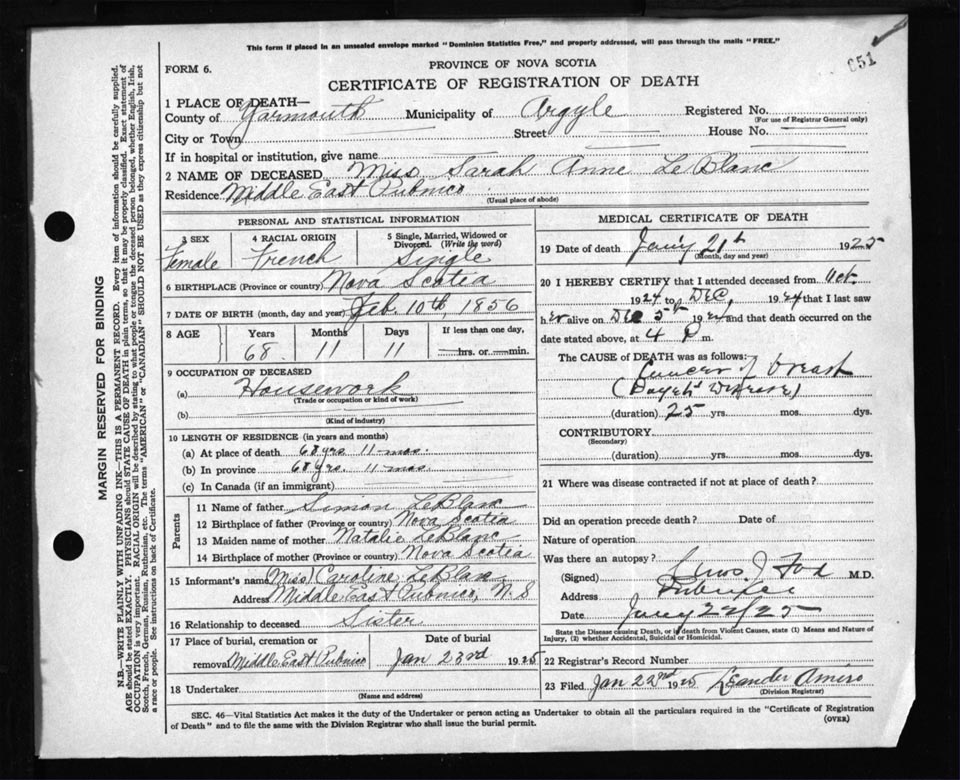 This form if placed in an unsealed envelope marked "Dominion Statistics Free," and properly addressed, will pass through the mails "FREE."
651
FORM 6.
PROVINCE OF NOVA SCOTIA
CERTIFICATE OF REGISTRATION OF DEATH
1 PLACE OF DEATH—
County of Yarmouth Municipality of Argyle Registered No.
(For use of Registrar General only)
City or Town Street House No.
If in hospital or institution, give name
2 NAME OF DECEASED Miss Sarah Anne LeBlanc
Residence Middle East Pubnico
(Usual place of abode)
PERSONAL AND STATISTICAL INFORMATION
3 SEX 4 RACIAL ORIGIN 5 Single, Married, Widowed or Divorced. (Write the word)
Female French Single
6 BIRTHPLACE (Province or country) Nova Scotia
7 DATE OF BIRTH (month, day and year) Feb. 10th, 1856
8 AGE Years Months Days If less than one day,
68 11 11 hrs. or min.
9 OCCUPATION OF DECEASED
(a) Housework
(Trade or occupation or kind of work)
(b)
(Kind of industry)
10 LENGTH OF RESIDENCE (in years and months)
(a) At place of death 68 yrs. 11 mos.
(b) In province 68 yrs. 11 mos
(c) In Canada (if an immigrant)
Parents
11 Name of father Simon LeBlanc
12 Birthplace of father (Province or country) Nova Scotia
13 Maiden name of mother Natalie LeBlanc
14 Birthplace of mother (Province or country) Nova Scotia
15 Informant's name (Miss) Caroline LeBlanc
Address Middle East Pubnico, N.S
16 Relationship to deceased Sister
17 Place of burial, cremation or Date of burial
removal Middle East Pubnico Jan 23rd 1925
18 Undertaker
(Name and address)
MEDICAL CERTIFICATE OF DEATH
19 Date of death Jany 21st 1925
(Month, day and year)
20 I HEREBY CERTIFY that I attended deceased from Oct.
1924 to Dec, 1924 that I last saw
her alive on Dec 5th 1924 and that death occurred on the
date stated above, at 4 P m.
The CAUSE of DEATH was as follows:
Cancer of breast
(Paget's Disease)
(duration) 25 yrs. mos. dys.
CONTRIBUTORY
(Secondary)
(duration) yrs. mos. dys.
21 Where was disease contracted if not at place of death?
Did an operation precede death? Date of
Nature of operation
Was there an autopsy?
(Signed) J Fox M.D.
Address Pubnico
Date Jany 22/25
State the Disease causing Death, or is death from Violent Causes, state (1) Means and Nature of
Injury, (2) whether Accidental, Suicidal or Homicidal.
22 Registrar's Record Number
23 Filed Jan 22nd 1925 Leander Amiro
(Division Registrar)
SEC. 46—Vital Statistics Act makes it the duty of the Undertaker or person acting as Undertaker to obtain all the particulars required in the "Certificate of Registration
of Death" and to file the same with the Division Registrar who shall issue the burial permit.
(OVER)
MARGIN RESERVED FOR BINDING
N.B.—WRITE PLAINLY WITH UNFADING INK—THIS IS A PERMANENT RECORD. Every item of information should be carefully supplied.
AGE should be stated EXACTLY. PHYSICIANS should STATE CAUSE OF DEATH in plain terms, so that it may be properly classified. Exact statement of
OCCUPATION is very important. RACIAL ORIGIN will be described by stating to what people or tongue the deceased person belonged, whether English, Irish,
Scotch, French, German, Russian, Ruthenian, etc. The terms "AMERICAN" or "CANADIAN" SHOULD NOT BE USED as they express citizenship but not
a race or people. See instructions on back of Certificate.